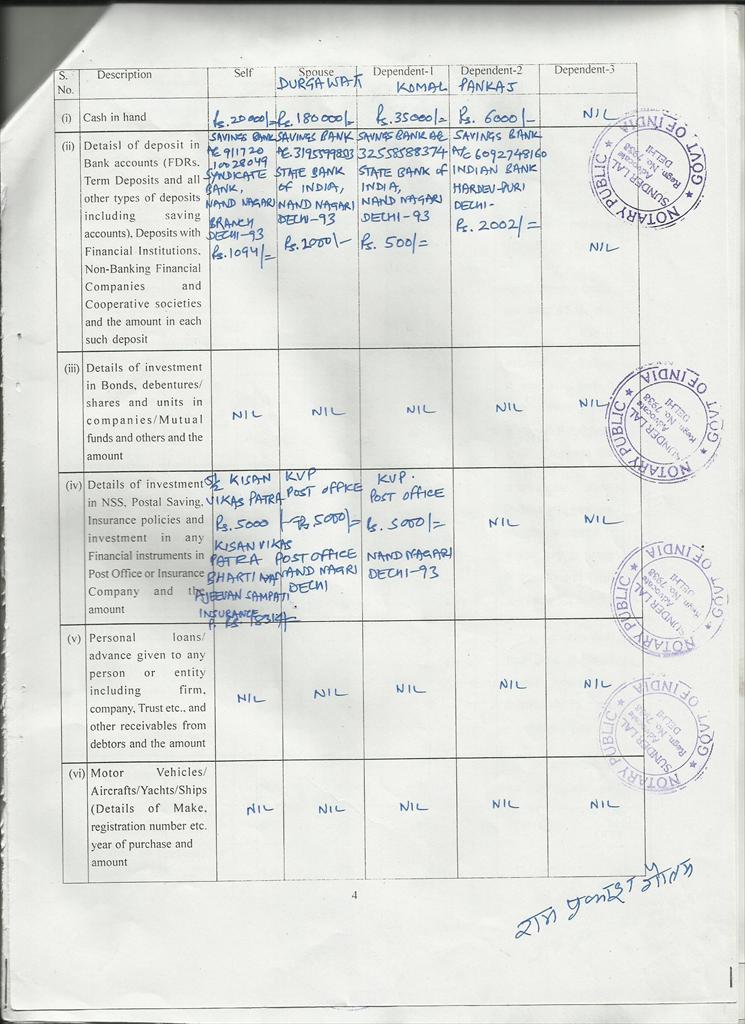 S. No. Description Self Spouse Dependent-1 Dependent-2 Dependent-3
DURGAWATI KOMAL PANKAJ
(i) Cash in hand Rs. 20000/= Rs. 180000/- Rs. 35000/- Rs. 6000/- NIL
(ii) Detaisl of deposit in Bank accounts (FDRs. Term Deposits and all other types of deposits including saving accounts), Deposits with Financial Institutions, Non-Banking Financial Companies and Cooperative societies and the amount in each such deposit
SAVINGS BANK
A/C 911720
10028049
SYNDICATE
BANK,
NAND NAGARI
BRANCH
DELHI-93
Rs. 1094/=
SAVINGS BANK
STATE BANK
OF INDIA,
NAND NAGARI
DELHI-93
SAVINGS BANK A/C
32558588374
STATE BANK OF
INDIA,
NAND NAGARI
DELHI-93
Rs. 500/=
SAVINGS BANK
A/C 6092748160
INDIAN BANK
HARDEV-PURI
DELHI-
Rs. 2002/=
NIL
(iii) Details of investment in Bonds, debentures/ shares and units in companies/Mutual funds and others and the amount
NIL NIL NIL NIL NIL
(iv) Details of investment in NSS, Postal Saving, Insurance policies and investment in any Financial instruments in Post Office or Insurance Company and the amount
KISAN
VIKAS PATRA
Rs. 5000
KISAN VIKAS
PATRA
JEEVAN SAMPATI
INSURANCE
KVP
POST OFFICE
Rs 5000/=
POST OFFICE
NAND NAGRI
DELHI
KVP.
POST OFFICE
Rs. 5000/=
NAND NAGARI
DELHI-93
NIL
NIL
(v) Personal loans/ advance given to any person or entity including firm, company, Trust etc., and other receivables from debtors and the amount
NIL NIL NIL NIL NIL
(vi) Motor Vehicles/ Aircrafts/Yachts/Ships (Details of Make, registration number etc. year of purchase and amount
NIL NIL NIL NIL NIL
4
राम प्रकाश गौतम
NOTARY PUBLIC ★ GOVT OF INDIA ★
SUNDER LAL
Advocate
Regn. No. 7938
DELHI
NOTARY PUBLIC ★ GOVT OF INDIA ★
SUNDER LAL
Advocate
Regn. No. 7938
DELHI
NOTARY PUBLIC ★ GOVT OF INDIA ★
SUNDER LAL
Advocate
Regn. No. 7938
DELHI
NOTARY PUBLIC ★ GOVT OF INDIA ★
SUNDER LAL
Advocate
Regn. No. 7938
DELHI